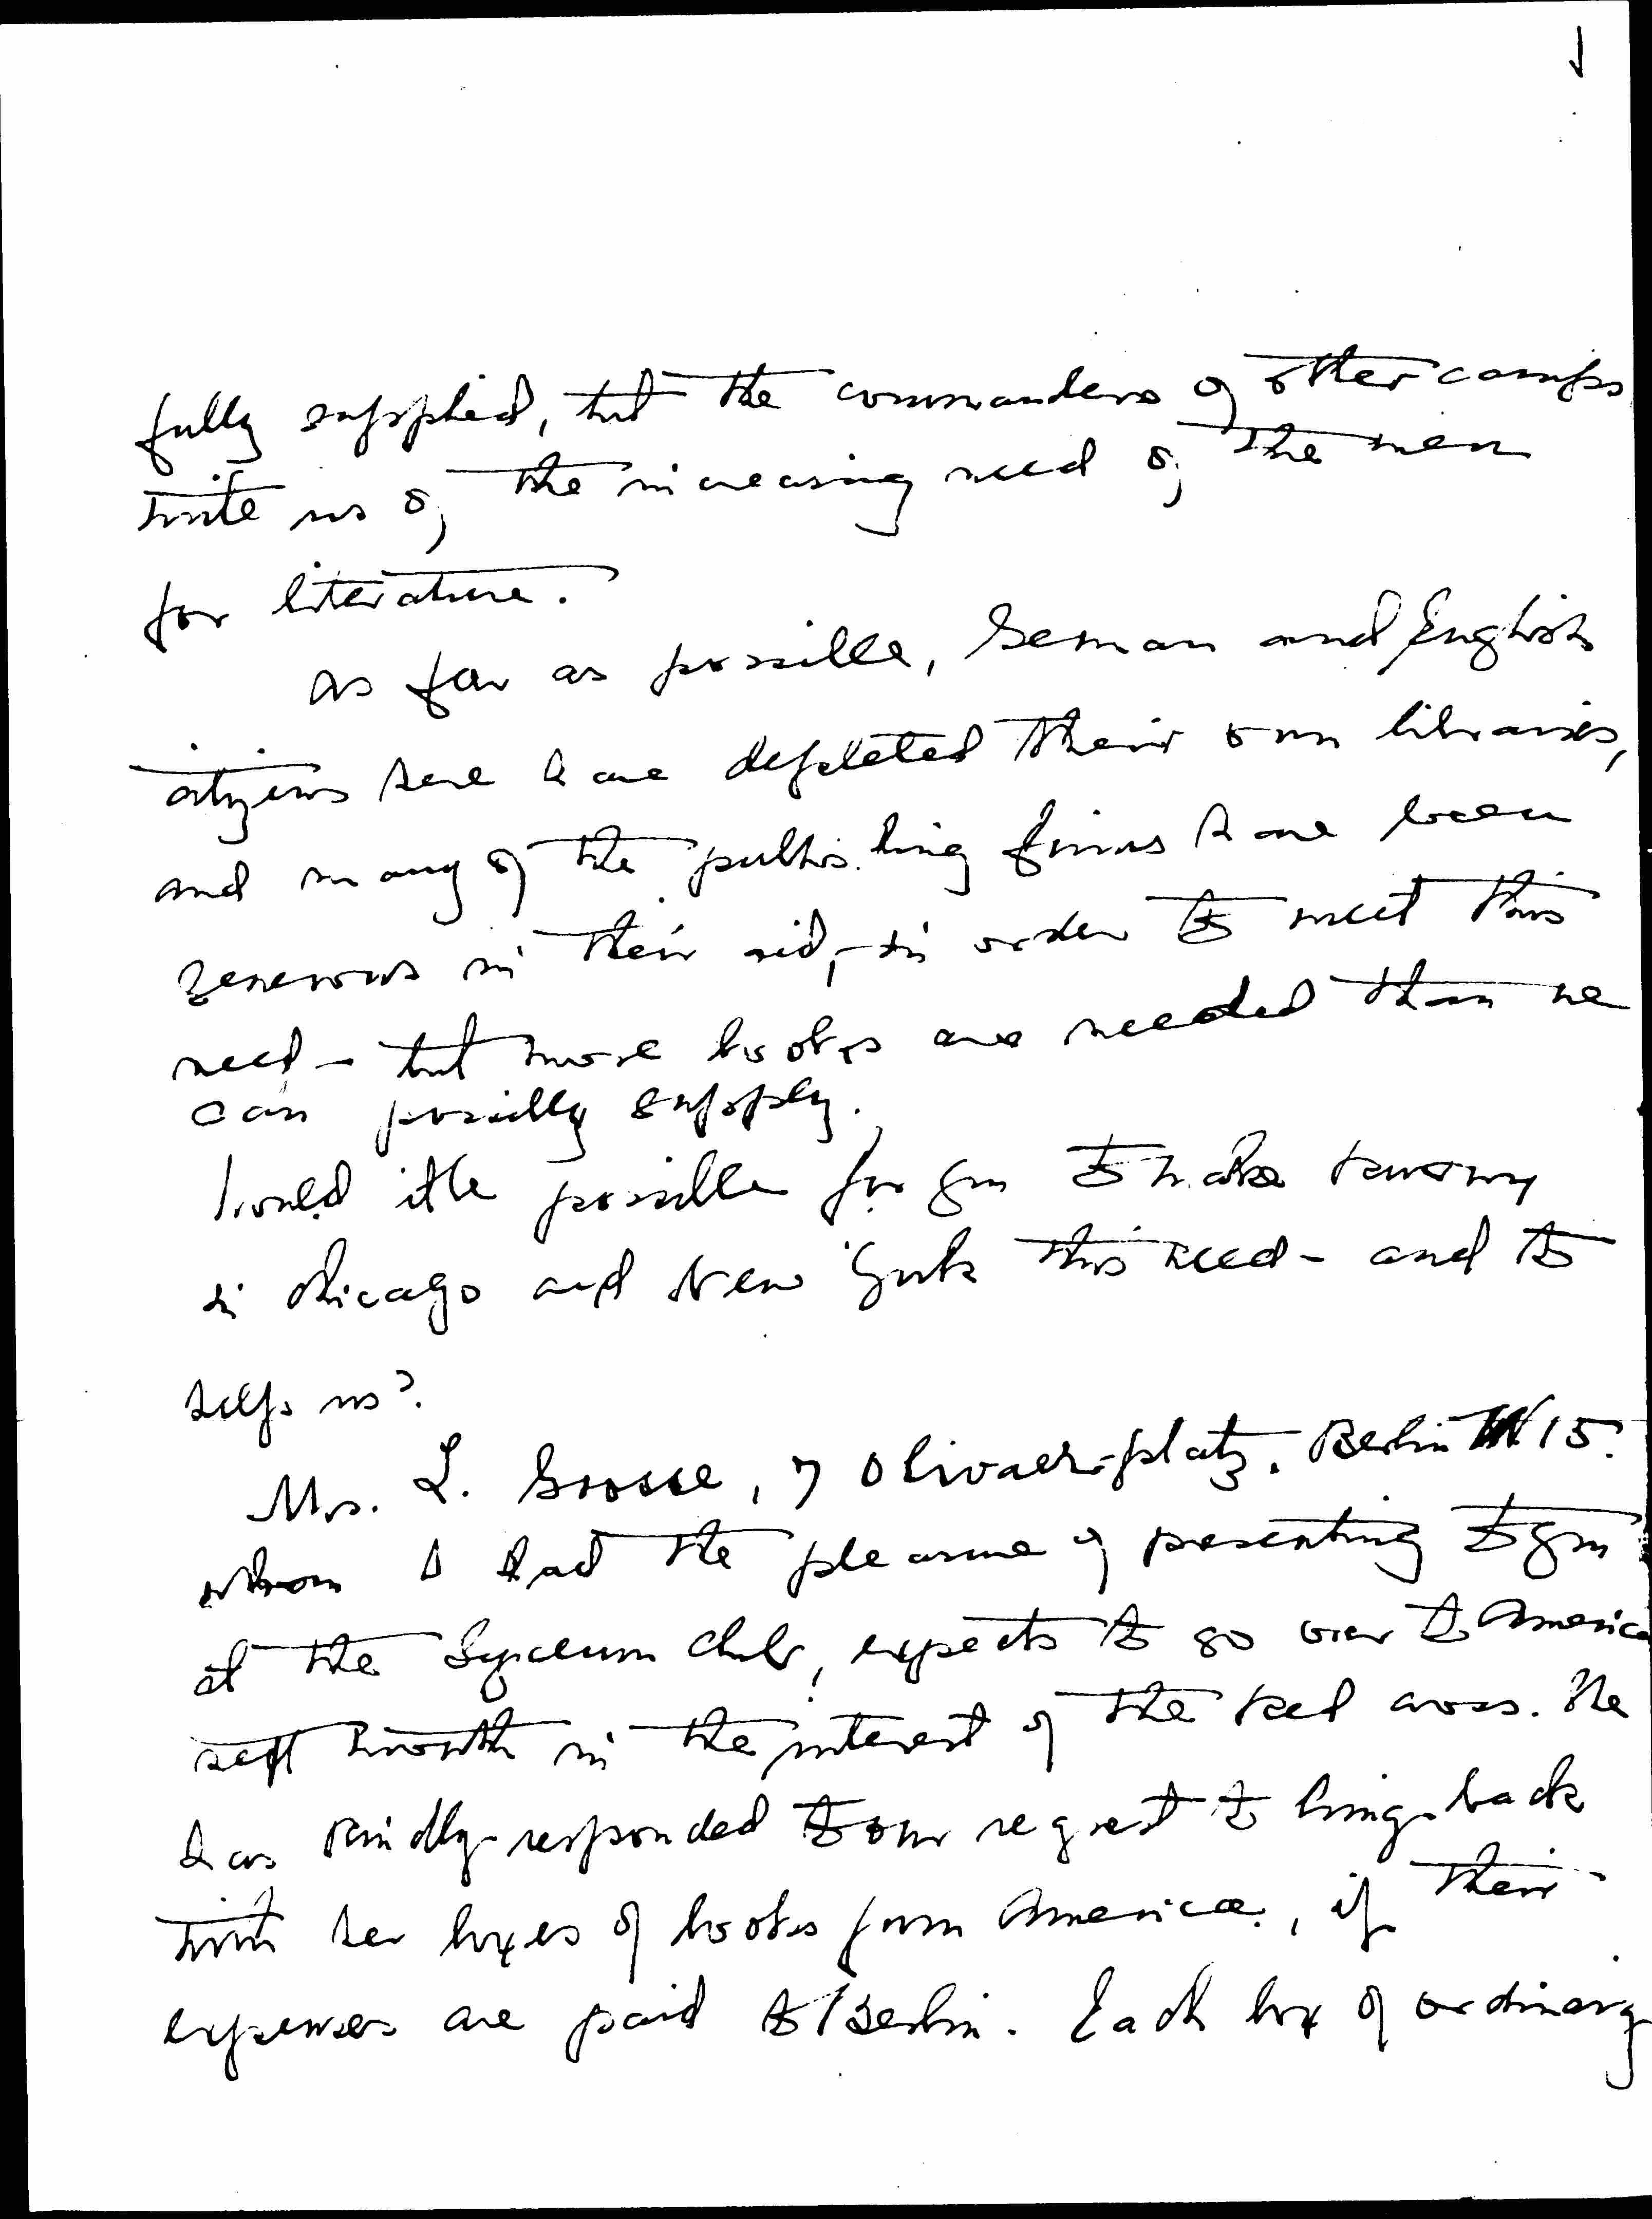 fully supplied, but the commanders of other camps
write us of the increasing need of the men
for literature.
As far as possible, German and English
citizens here have depleted their own libraries,
and many of the publishing firms have been
generous in their aid, - in order to meet this
need - but more books are needed than we
can possibly supply.
Would it be possible for you to make known
in Chicago and New York this need - and to
help us?
Mrs. L. Grosse, 7 Olivaer-platz. Berlin W 15.
whom I had the pleasure of presenting to you
at the Lyceum Club, expects to go over to America
next month in the interest of the Red Cross. She
has kindly responded to our request to bring back
with her boxes of books from America, if their
expenses are paid to Berlin. Each box of ordinary